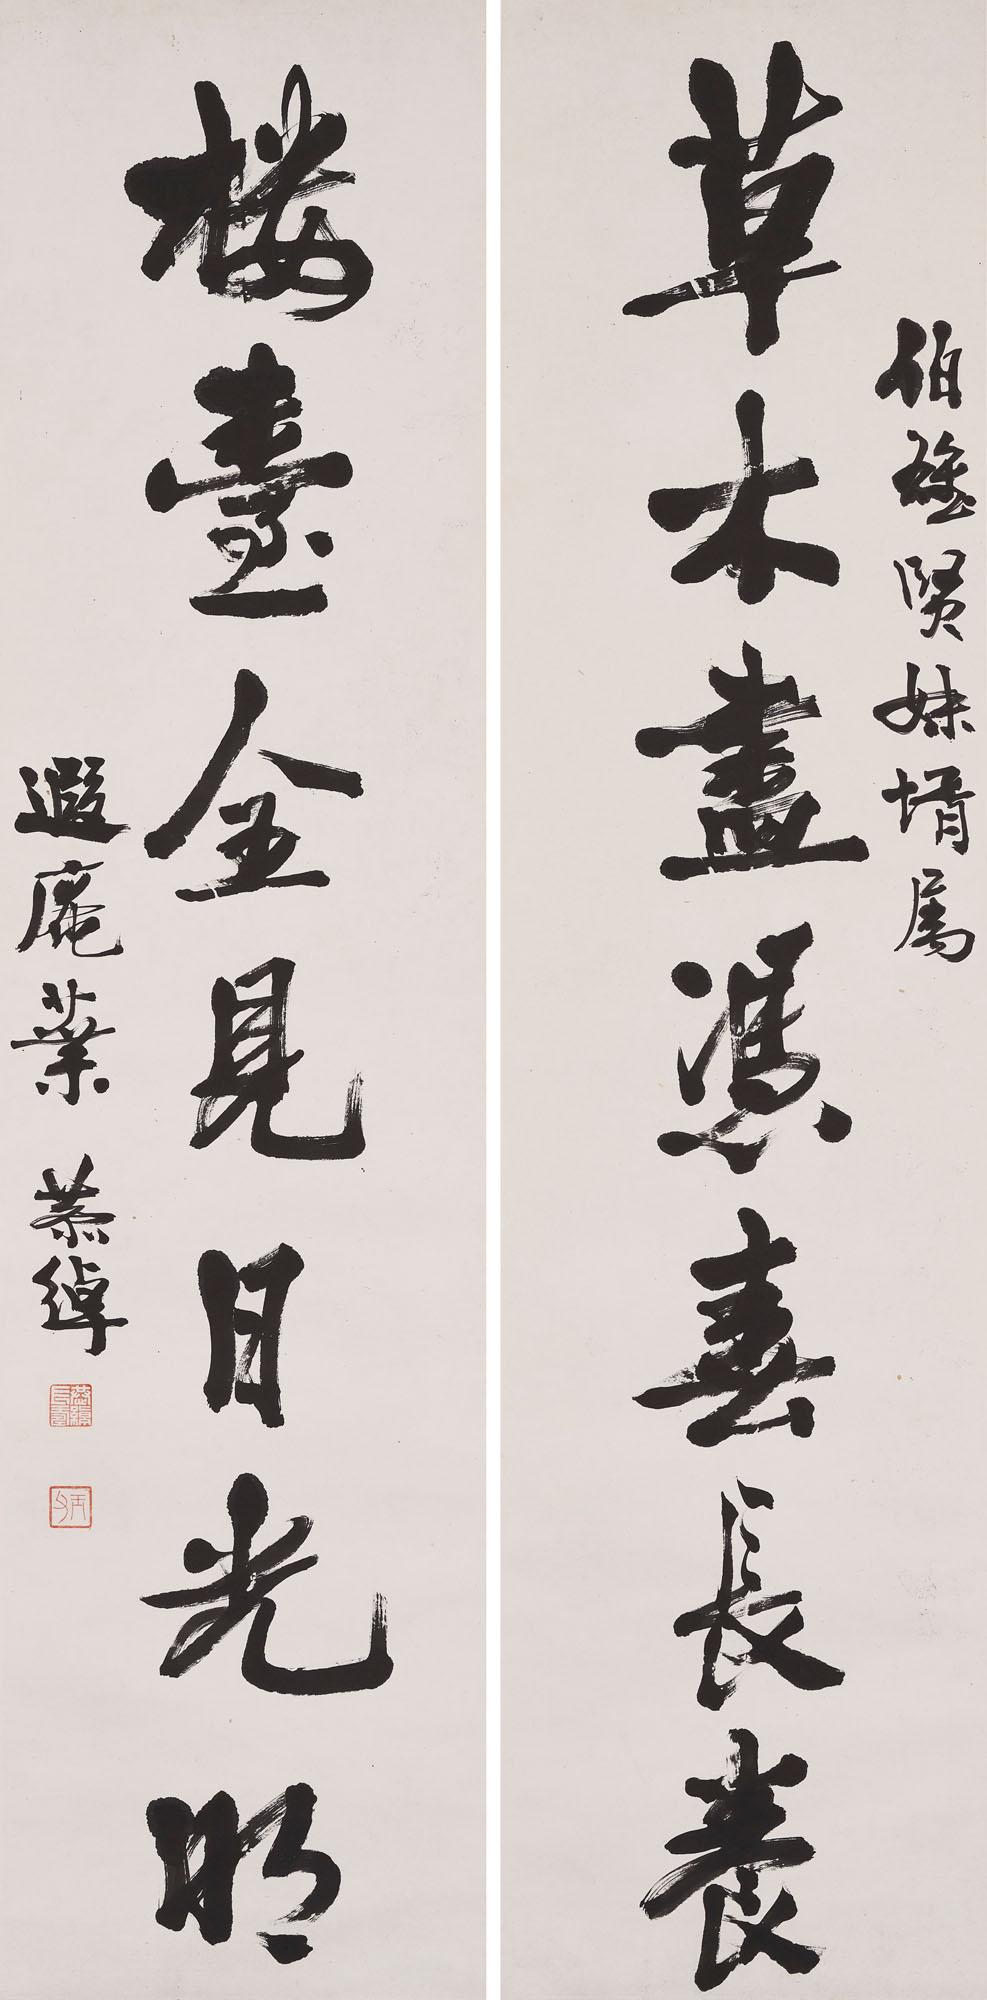 伯□賢妹壻属
草木盡憑春長養
樓臺全見日光明
遐庵葉恭綽